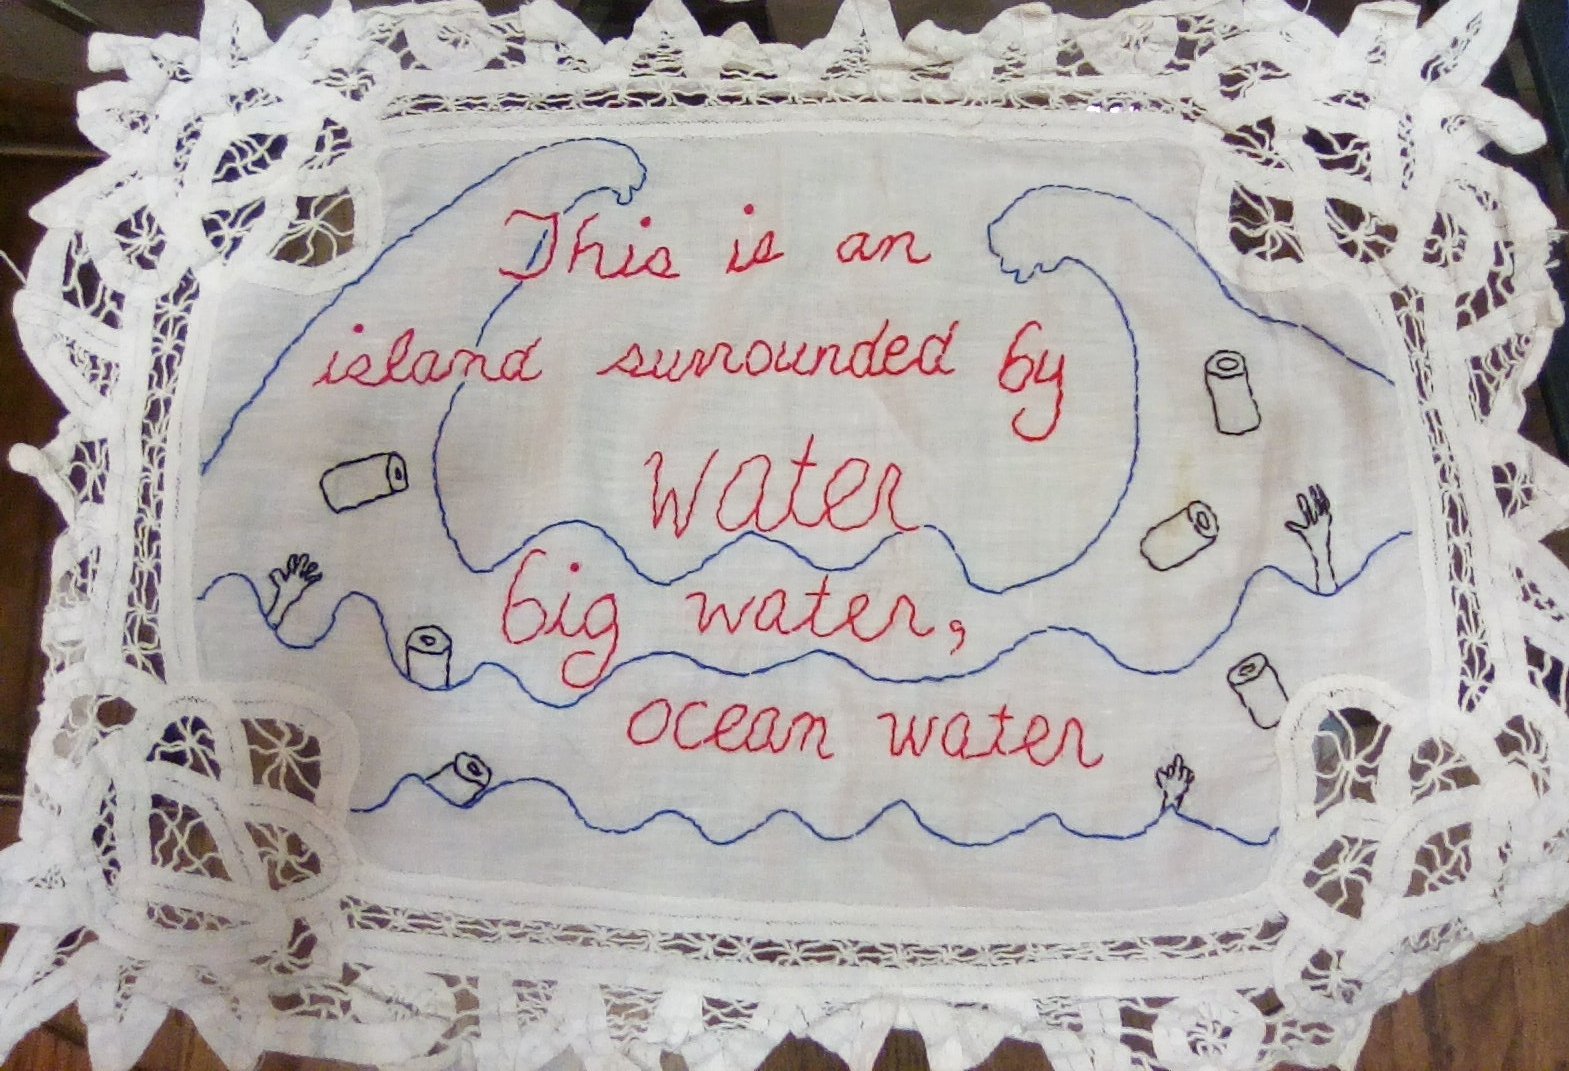 This is an
island surrounded by
Water
big water,
ocean water